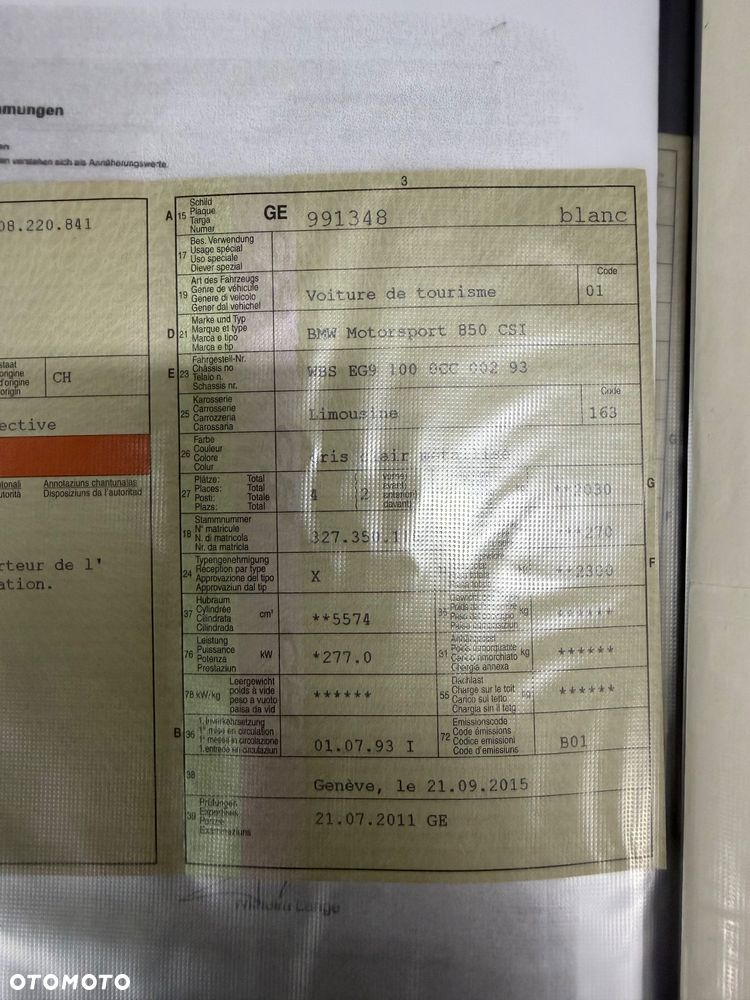 mmungen
en
en verstehen sich als Annäherungswerte.
3
08.220.841
A 15 Schild
Plaque
Targa
Numer
GE 991348 blanc
17 Bes. Verwendung
Usage spécial
Uso speciale
Diever spezial
19 Art des Fahrzeugs
Genre de véhicule
Genere di veicolo
Gener dal vehichel
Voiture de tourisme
Code
01
D 21 Marke und Typ
Marque et type
Marca e tipo
Marca e tip
BMW Motorsport 850 CSI
E 23 Fahrgestell-Nr.
Châssis no
Telaio n.
Schassis nr.
WBS EG9 100 0CC 002 93
staat
origine
d'origine
origin
CH
25 Karosserie
Carrosserie
Carrozzeria
Carossaria
Limousine
Code
163
ective
26 Farbe
Couleur
Colore
Colur
gris clair métallisé
Annotaziuns chantunalas
Disposiziuns da l'autoritad
27 Plätze: Total
Places: Total
Posti: Totale
Plazs: Total
4 2
vorne)
avant)
anteriori)
davant)
**2030
G
18 Stammnummer
N° matricule
N. di matricola
Nr. da matricla
327.350.1
**270
rteur de l'
ation.
24 Typengenehmigung
Réception par type
Approvazione del tipo
Approvaziun dal tip
X
kg
**2300
F
37 Hubraum
Cylindrée
Cilindrata
Cilindrada
cm³
**5574
35
kg
******
76 Leistung
Puissance
Potenza
Prestaziun
kW
*277.0
31 Anhängelast
Poids remorquable
Carico rimorchiato
Chargia annexa
kg
******
78 kW/kg Leergewicht
poids à vide
peso a vuoto
paisa da vid
******
55 Dachlast
Charge sur le toit
Carico sul tetto
Chargia sin il tetg
kg
******
B 36 1. Inverkehrsetzung
1re mise en circulation
1a messa in circolazione
1. entrada en circulaziun
01.07.93 I
72 Emissionscode
Code émissions
Codice emissioni
Code d'emissiuns
B01
38
Genève, le 21.09.2015
39 Prüfungen
Expertises
Perizie
Examinaziuns
21.07.2011 GE
Lange
OTOMOTO